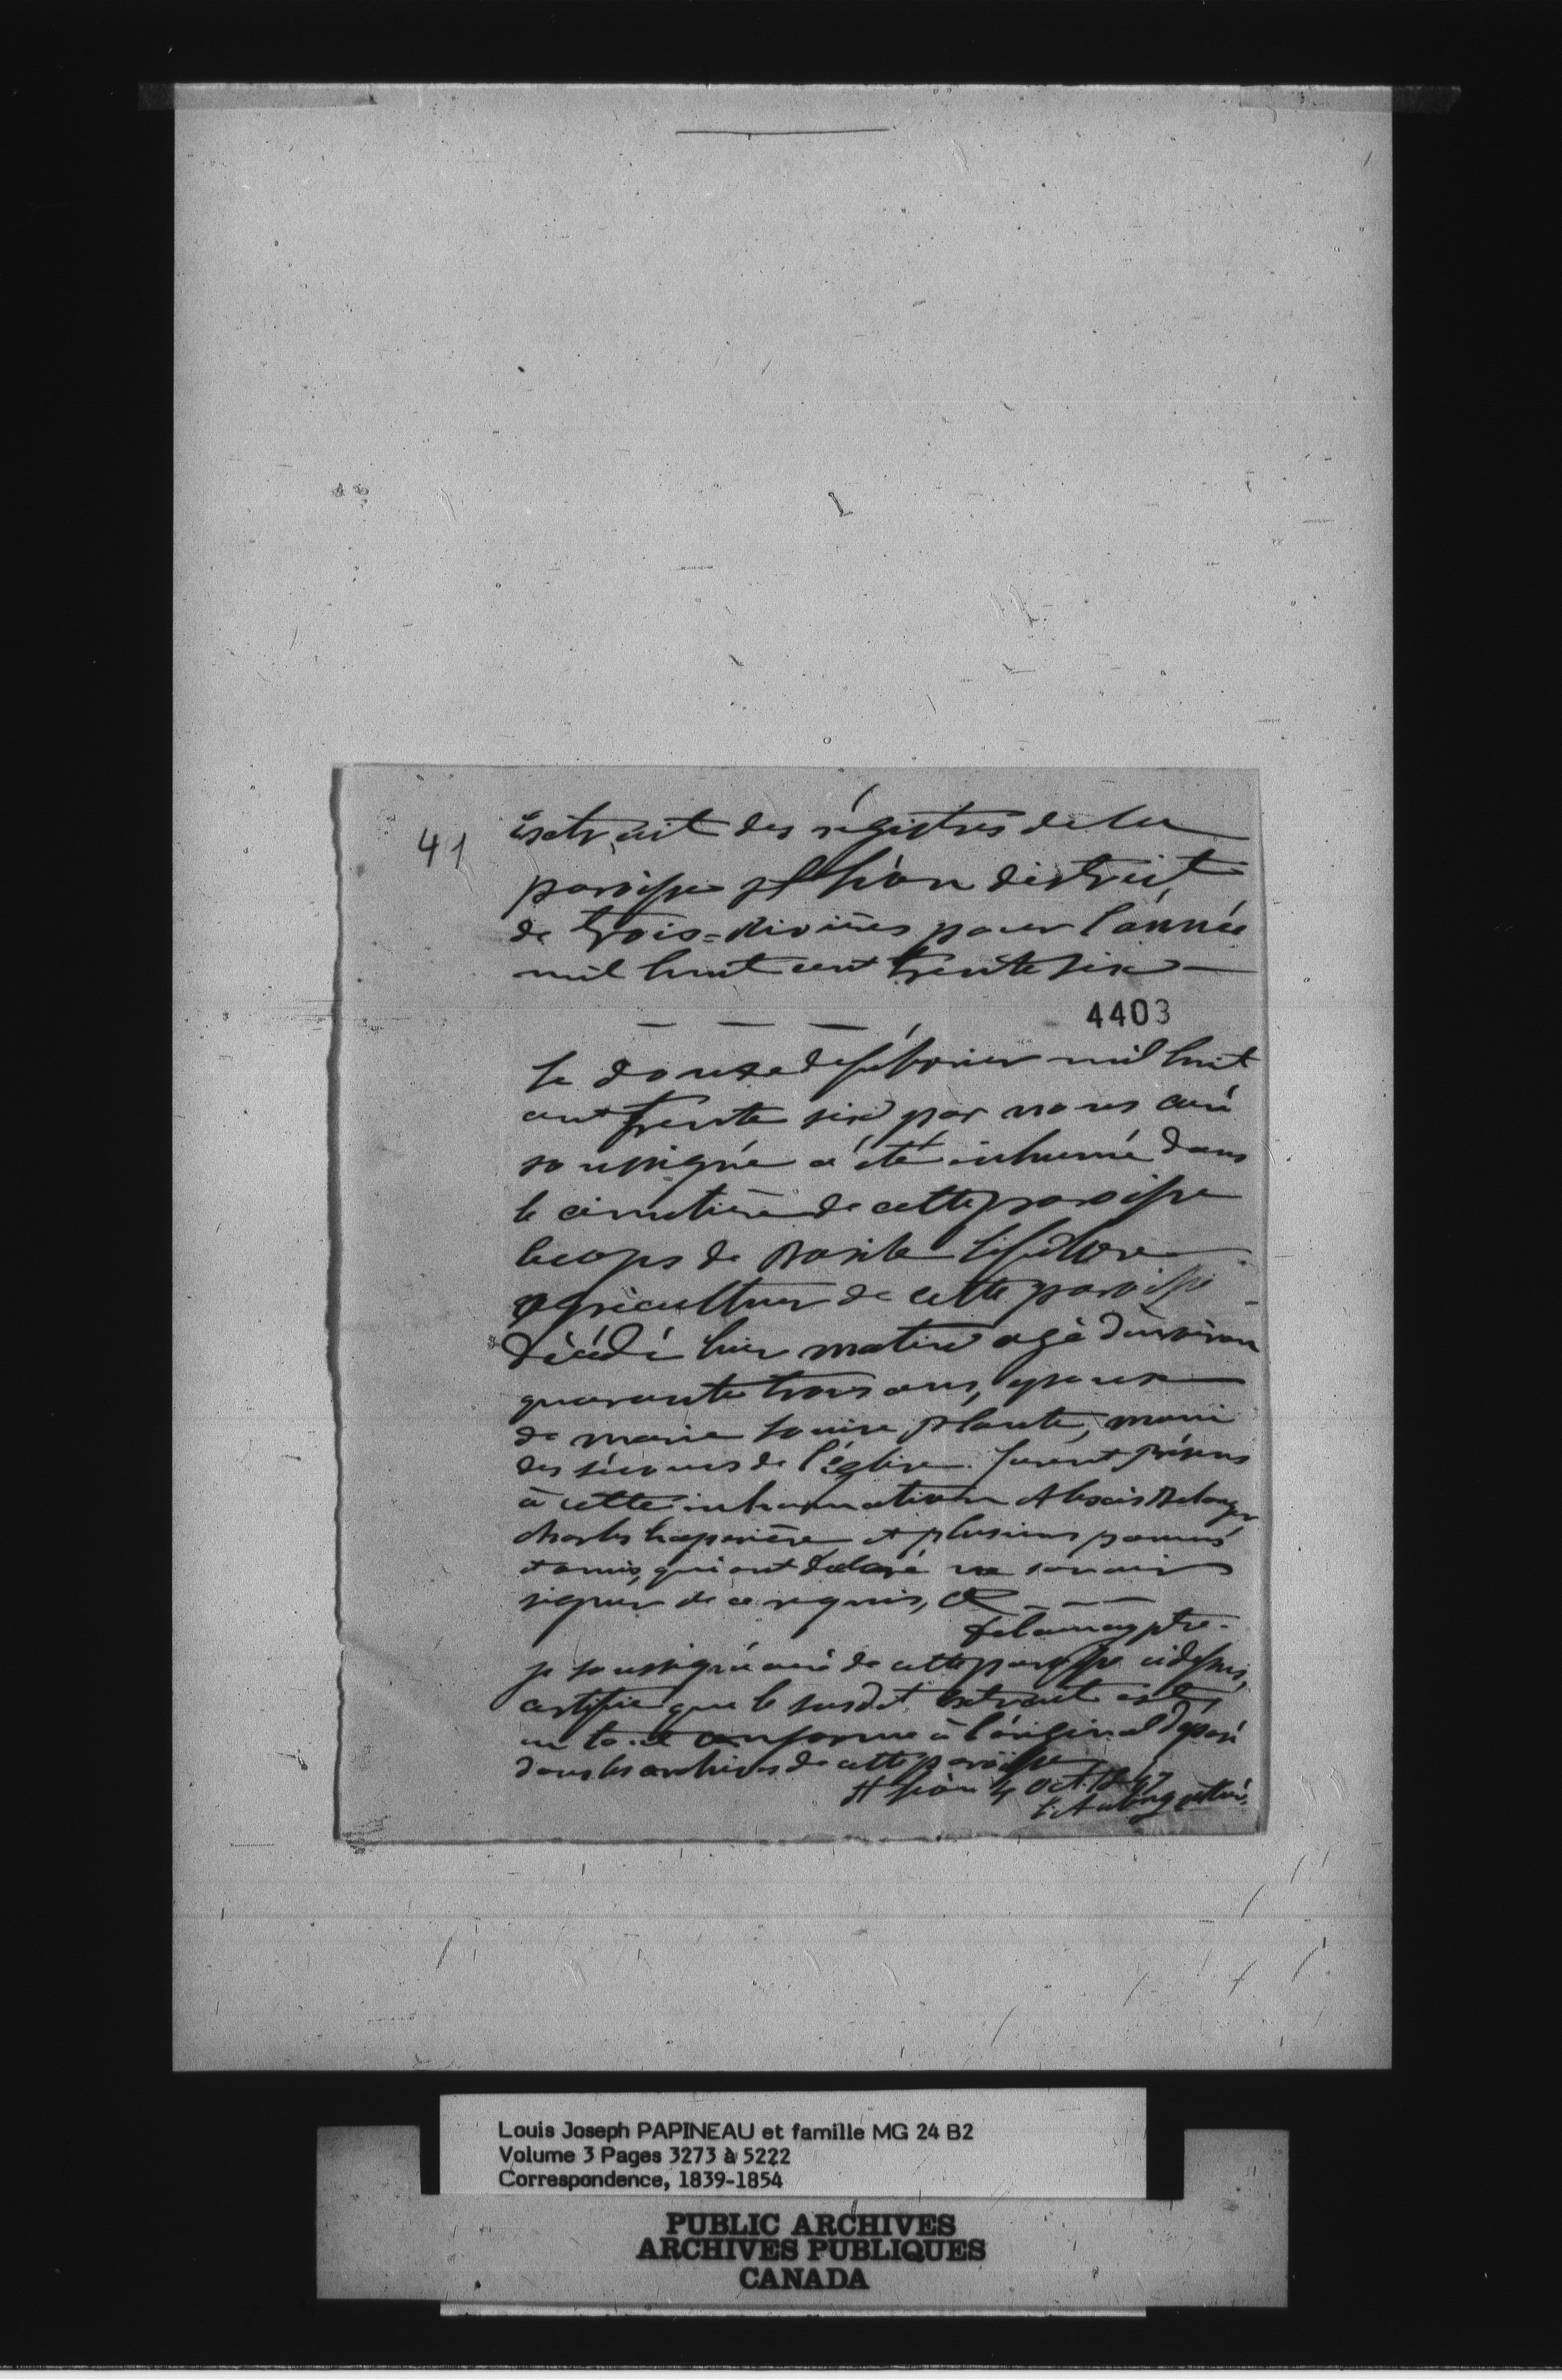 41
Extrait des régistres de la
paroisse St Léon district
de trois=rivières pour l'année
mil huit cent trente six
4403
Le douze de février mil huit
cent trente six par nous curé
soussigné a été inhumé dans
le cimetière de cette paroisse
le corps de Basile
agriculteur de cette paroisse
décédé hier matin agé d'environ
quarante trois ans, epoux
de marie Louise Plante, muni
des sécours de l'église. furent présens
à cette inhumation Alexis Belanger
charles et plusieurs parens
et amis, qui ont declaré ne savoir
signer de ce requis, &
ptre.
je soussigné curé de cette paroisse cidessus,
certifie que le susdit extrait est
en tout conforme à l'original déposé
dans les archives de cette paroisse
St Léon 4 Oct. 1847
Louis Joseph PAPINEAU et famille MG 24 B2
Volume 3 Pages 3273 à 5222
Correspondence, 1839-1854
PUBLIC ARCHIVES
ARCHIVES PUBLIQUES
CANADA